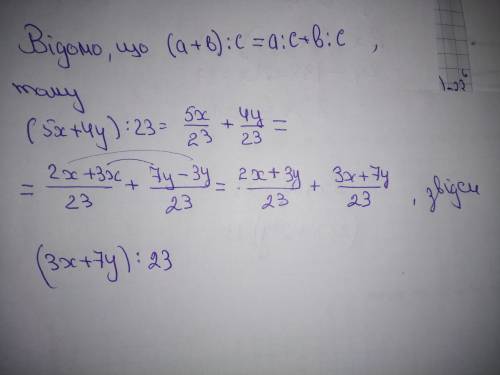 Відомо, що (a+b):c=a:c+b:c ,
тому
(5x+4y):23= 5x/23 + 4y/23 =
= 2x+3x/23 + 7y-3y/23 = 2x+3y/23 + 3x+7y/23 , звідси
(3x+7y):23